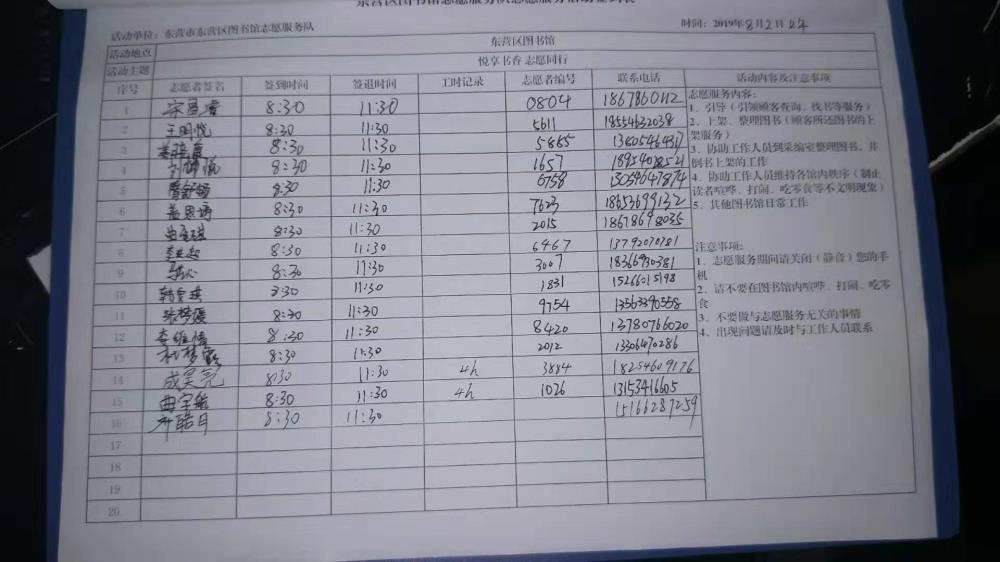 东营区图书馆志愿服务队志愿服务活动签到表
活动单位：东营市东营区图书馆志愿服务队 时间：2019年8月2日
活动地点 东营区图书馆
活动主题 悦享书香 志愿同行
序号 志愿者签名 签到时间 签退时间 工时记录 志愿者编号 联系电话 活动内容及注意事项
1 8:30 11:30 0804
2 王明悦 8:30 11:30 5611 18554632038
3 8:30 11:30 5865
4 8:30 11:30 1657
5 8:30 11:30 6758
6 盖思琦 8:30 11:30 7623 18653699132
7 8:30 11:30 2015 18678698035
8 8:30 11:30 6467 13792070781
9 8:30 11:30 3007 18366930381
10 8:30 11:30 1831 15266015198
11 张梦媛 8:30 11:30 9754 13563390558
12 李维倩 8:30 11:30 8420 13780766020
13 8:30 11:30 2012 13306470286
14 成昊亮 8:30 11:30 4h 3884 18254609176
15 曲宇航 8:30 11:30 4h 1026 13153416605
16 8:30 11:30 15166287259
17
18
19
20
志愿服务内容：
1、引导（引领顾客查询、找书等服务）
2、上架、整理图书（顾客所还图书的上
架服务）
3、协助工作人员到采编室整理图书，并
倒书上架的工作
4、协助工作人员维持各馆内秩序（制止
读者喧哗、打闹、吃零食等不文明现象）
5、其他图书馆日常工作
注意事项：
1、志愿服务期间请关闭（静音）您的手
机
2、请不要在图书馆内喧哗、打闹、吃零
食
3、不要做与志愿服务无关的事情
4、出现问题请及时与工作人员联系